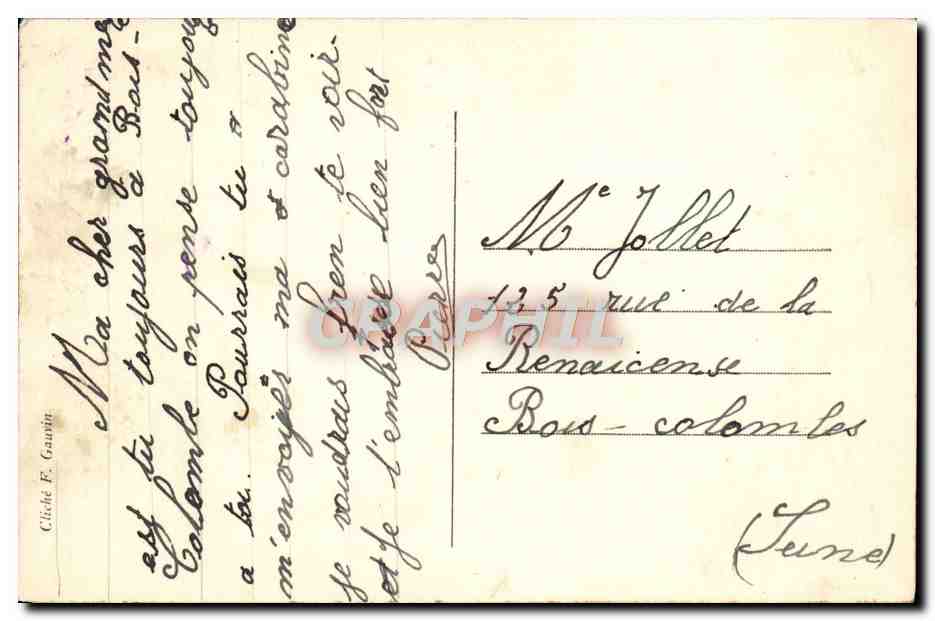 Ma cher grand mere
est tu toujours a Bois-
Colombe on pense toujours
a toi. Pourrais tu a
m'envoyés ma carabine
je voudrais bien te voir.
et je t'embrasse bien fort
Pierre
Cliché F. Gauvin
Me Jollet
125 rue de la
Renaicense
Bois-colombes
(Seine)
CRAPHIL